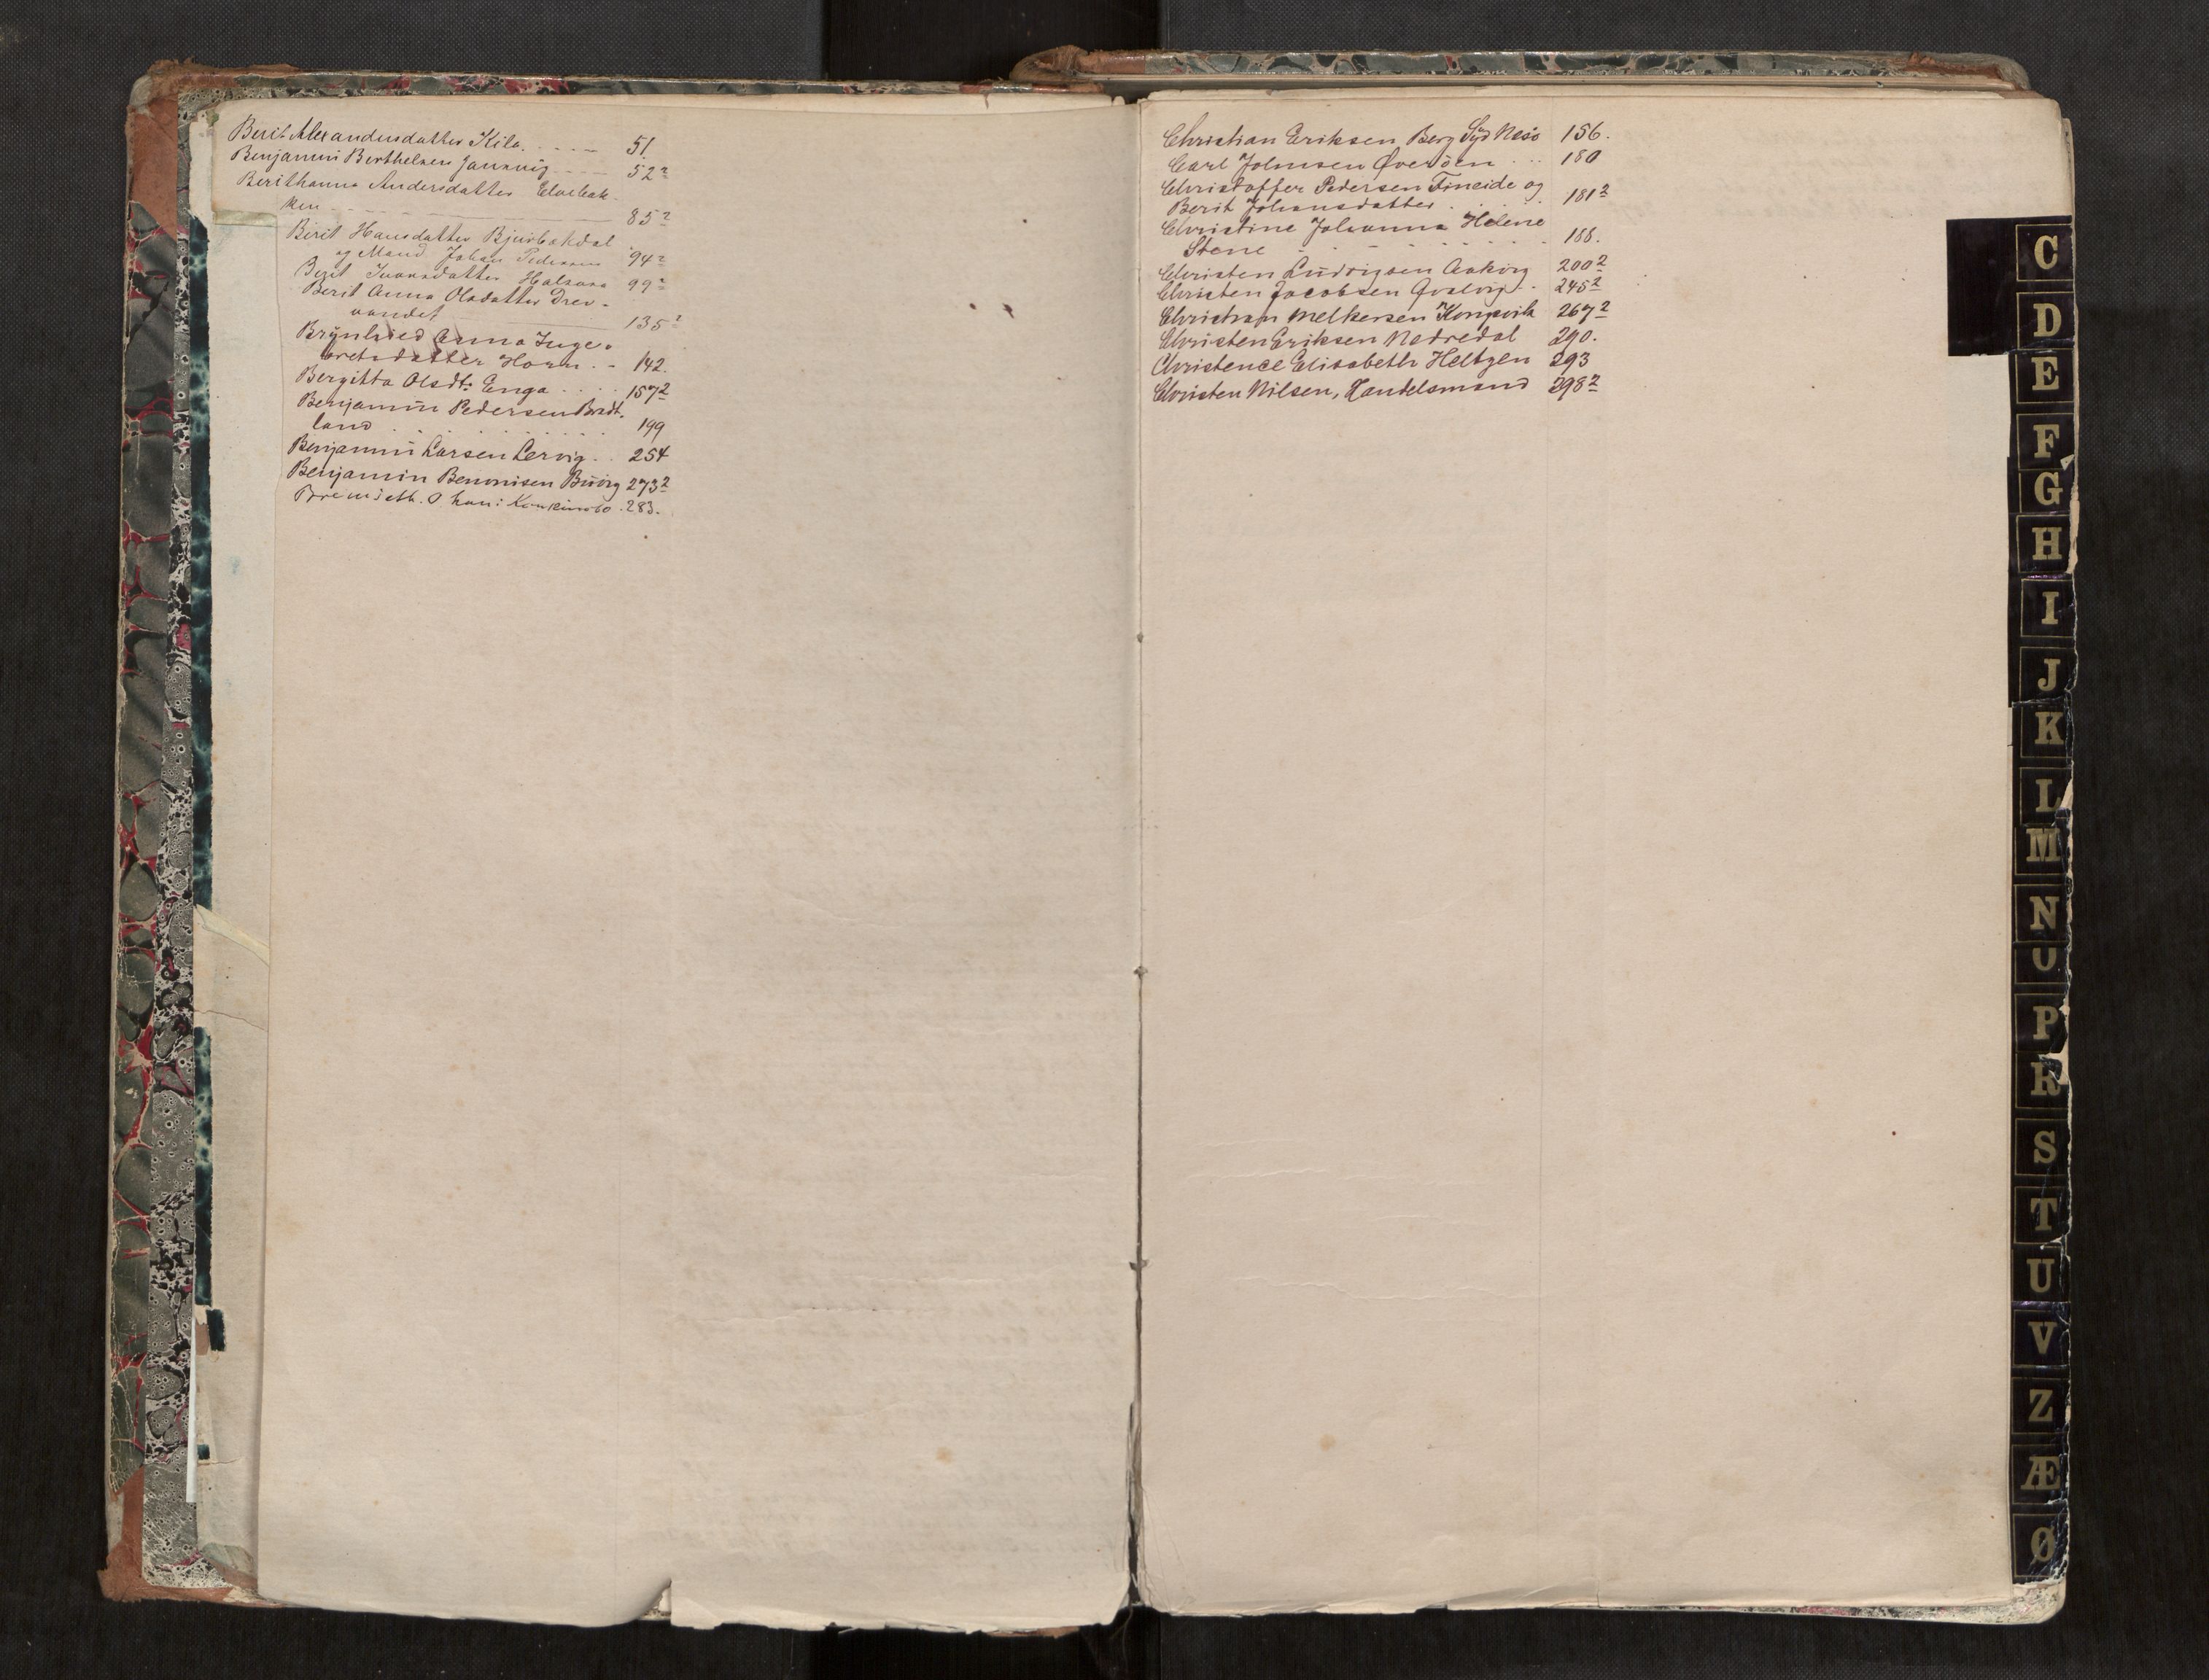 Berit Alexandersdatter Kila. 51.
Benjamin Berthelsen Jannvig 52 2
Berithanna Andersdatter Elvebak-
ken 85 2
Berit Hansdatter Bjurbækdal
og Mand Johan Pedersen 94 2
Berit Ivarsdatter Halsøen 99 2
Berit Anna Olsdatter Drev-
vandet 135 2
Brynhild Anna Inge-
bretsdatter Horn 142.
Bergitta Olsdt: Enga 157 2
Benjamin Pedersen Bredt-
land 199
Benjamin Larsen Lervig 254
Benjamin Benonisen 273 2
283.
Christian Eriksen Berg Syd Nesø 156.
Carl Johnsen Øverøen 180
Christoffer Pedersen Fineide og
Berit Johansdatter 181 2
Christine Johanna Helene
Stene 188.
Christen Ludvigsen Aakvig 200 2
Christen Jacobsen Qvalvig 245 2
Christian Melkersen Kongsvik 267 2
Christen Eriksen Nedredal 290.
Christence Elisabeth Heltzen 293
Christen Nilsen, Handelsmand 298 2
C
D
E
F
G
H
I
J
K
L
M
N
O
P
R
S
T
U
V
Z
Æ
Ø